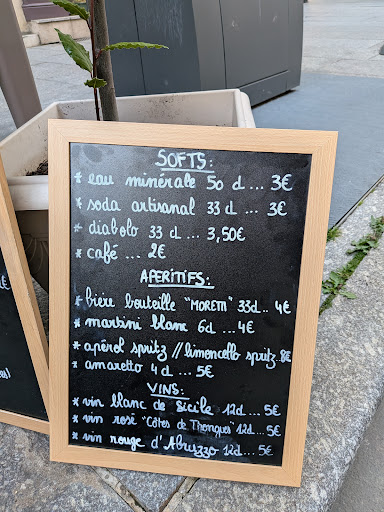 SOFTS:
* eau minérale 50 cl ... 3€
* soda artisanal 33 cl ... 3€
* diabolo 33 cl ... 3,50€
* café ... 2€
APERITIFS:
* bière bouteille "MORETTI" 33cl.. 4€
* martini blanc 6cl ...4€
* apérol spritz // limoncello spritz.8€
* amaretto 4 cl ... 5€
VINS:
* vin blanc de Sicile 12cl... 5€
* vin rosé "Côtes de Thongues" 12cl...5€
* vin rouge d'Abruzzo 12cl... 5€